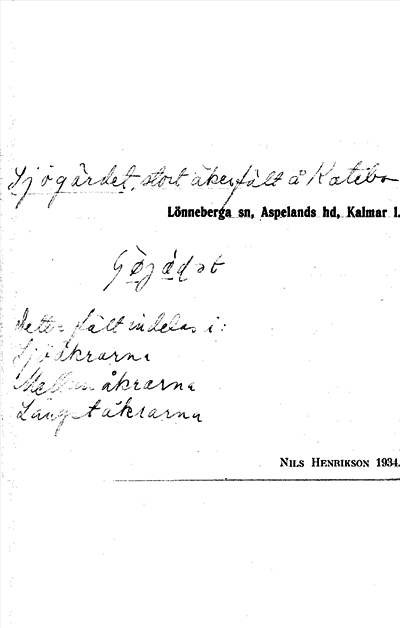 Sjögärdet, stort åkerfält å Katebo
Lönneberga sn, Aspelands hd, Kalmar l.
Detta fält indelas i:
Sjöåkrarna
Mellanåkrarna
Långtåkrarna
NILS HENRIKSON 1934.